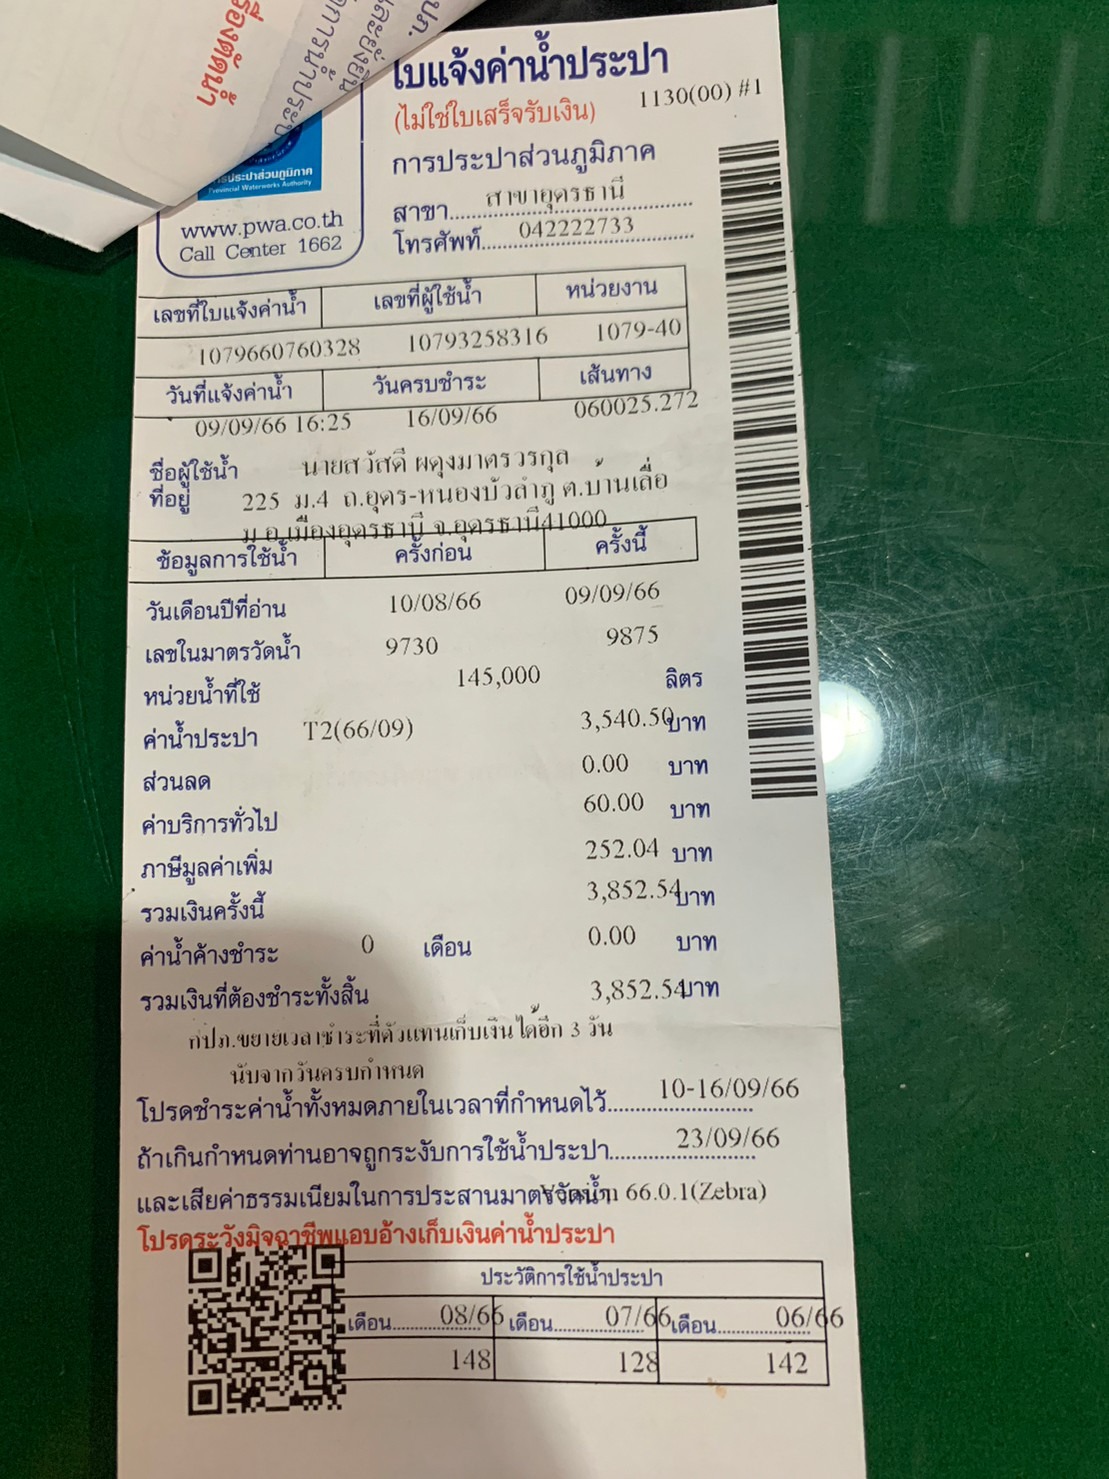 ใบแจ้งค่าน้ำประปา
(ไม่ใช่ใบเสร็จรับเงิน) 1130(00) #1
การประปาส่วนภูมิภาค
Provincial Waterworks Authority
www.pwa.co.th
Call Center 1662
สาขา สาขาอุดรธานี
โทรศัพท์ 042222733
เลขที่ใบแจ้งค่าน้ำ เลขที่ผู้ใช้น้ำ หน่วยงาน
1079660760328 10793258316 1079-40
วันที่แจ้งค่าน้ำ วันครบชำระ เส้นทาง
09/09/66 16:25 16/09/66 060025.272
ชื่อผู้ใช้น้ำ นายสวัสดี ผดุงมาตรวรกุล
ที่อยู่ 225 ม.4 ถ.อุดร-หนองบัวลำภู ต.บ้านเลื่อ
ม อ.เมืองอุดรธานี จ.อุดรธานี41000
ข้อมูลการใช้น้ำ ครั้งก่อน ครั้งนี้
วันเดือนปีที่อ่าน 10/08/66 09/09/66
เลขในมาตรวัดน้ำ 9730 9875
หน่วยน้ำที่ใช้ 145,000 ลิตร
ค่าน้ำประปา T2(66/09) 3,540.50 บาท
ส่วนลด 0.00 บาท
ค่าบริการทั่วไป 60.00 บาท
ภาษีมูลค่าเพิ่ม 252.04 บาท
รวมเงินครั้งนี้ 3,852.54 บาท
ค่าน้ำค้างชำระ 0 เดือน 0.00 บาท
รวมเงินที่ต้องชำระทั้งสิ้น 3,852.54 บาท
กปภ.ขยายเวลาชำระที่ตัวแทนเก็บเงินได้อีก 3 วัน
นับจากวันครบกำหนด
โปรดชำระค่าน้ำทั้งหมดภายในเวลาที่กำหนดไว้ 10-16/09/66
ถ้าเกินกำหนดท่านอาจถูกระงับการใช้น้ำประปา 23/09/66
และเสียค่าธรรมเนียมในการประสานมาตรวัดน้ำ Version 66.0.1(Zebra)
โปรดระวังมิจฉาชีพแอบอ้างเก็บเงินค่าน้ำประปา
ประวัติการใช้น้ำประปา
เดือน 08/66 เดือน 07/66 เดือน 06/66
148 128 142